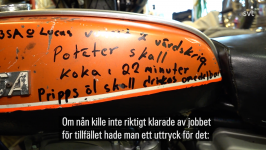 svt
BSA o Lucas världskrig
Potater skall
Koka i 22 minuter
Pripps öl skall drickas omedelbart
Om nån kille inte riktigt klarade av jobbet
för tillfället hade man ett uttryck för det: